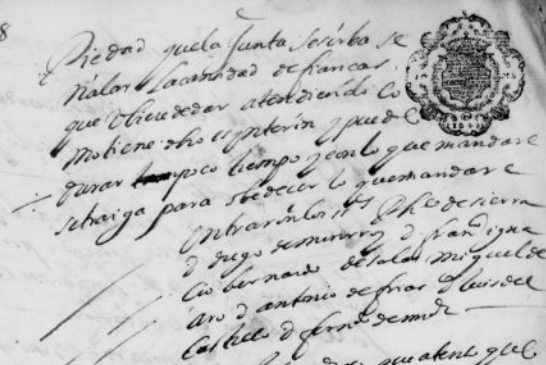 Piedad que la Junta se sirba se
ñalar la cantidad de fianças
que Ubiere de dar atendiendo Co
mo tiene dho es ynterin y puede
durar tan poco tiempo y con lo que mandare
se traiga para obedecer lo que mandare
entraron los ss.es de sierra
D diego D fran.co igna
cio bernardo de salas miguel de
aro D antonio de frias D luis del
Castillo D fern.do
que atento quel